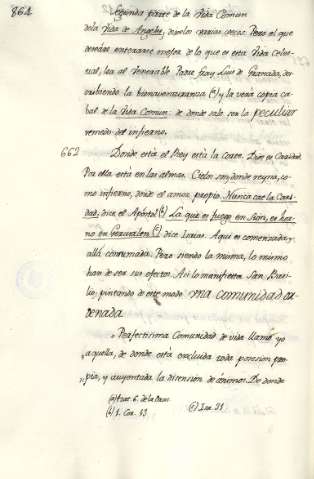 864
Segunda parte de la Vida Comun
dela Vida de Angeles, de solas varias cosas. Pero el que
desea enterarse mejor de lo que es esta Vida Celes-
tial, lea al Venerable Padre fray Luis de Granada, des-
cubriendo la bienaventuranza (a) y la vera copia ca-
bal de la Vida Comun: de donde solo sea la peculiar
remedo del infierno.
662 Donde està el Rey està la corte. Dios es Caridad.
Por ella està en las almas. Cielo son donde reyna, co-
mo infierno, donde el amor propio. Nunca cae la Cari-
dad, dice el Apóstol (b) La que es fuego en Sion, es hor-
no en Gerusalen (c) dice Isaias. Aqui es comenzada, y
allà consumada. Pero siendo la misma, lo mismo
han de ser sus efectos. Asi lo manifiesta San Basi-
lio pintando de este modo una comunidad or-
denada.
"Perfectisima Comunidad de vida llamo yo
aquella, de donde està excluida toda posesion pro-
pia, y auyentada la disension de ánimos. De donde
(b) 1. Cor. 13 (c) Isa. 31